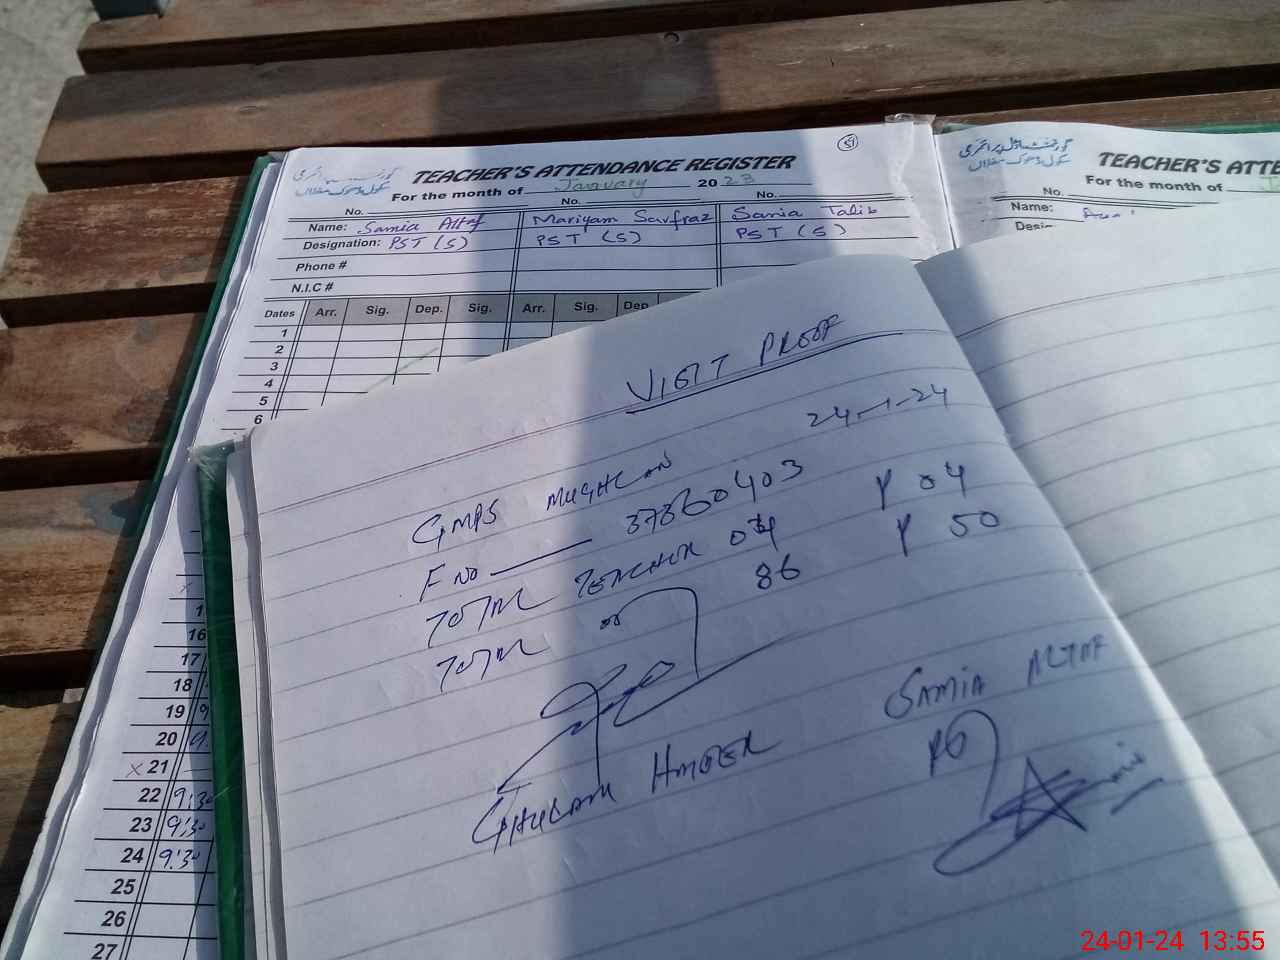 51
TEACHER'S ATTENDANCE REGISTER
For the month of January 2023
No. No. No.
Name: Samia Altaf Mariyam Sarfraz Sania Talib
Designation: PST (S) PST (S) PST (S)
Phone #
N.I.C #
Dates Arr. Sig. Dep. Sig. Arr. Sig. Dep
1
2
3
4
5
6
16
17
18
19 9
20 9
x 21
22 9:30
23 9:30
24 9:30
25
26
27
گورنمنٹ ماڈل پرائمری
سکول ڈھوک مغلاں
TEACHER'S ATTE
For the month of
No.
Name:
VISIT PROOF
24-1-24
GMPS MUGHLAN
F NO 37360403
TOTAL TEACHER 04 P 04
TOTAL 86 P 50
GHULAM
SAMIA ALTAF
24-01-24 13:55